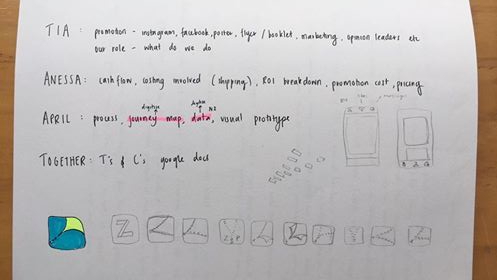 TIA : promotion - instagram, facebook, poster, flyer / booklet, marketing, opinion leaders etc
our role - what do we do
ANESSA : cashflow, costing involved (shipping), ROI breakdown, promotion cost, pricing
APRIL : process, journey map, data, NZ visual prototype
TOGETHER : T's & C's google docs